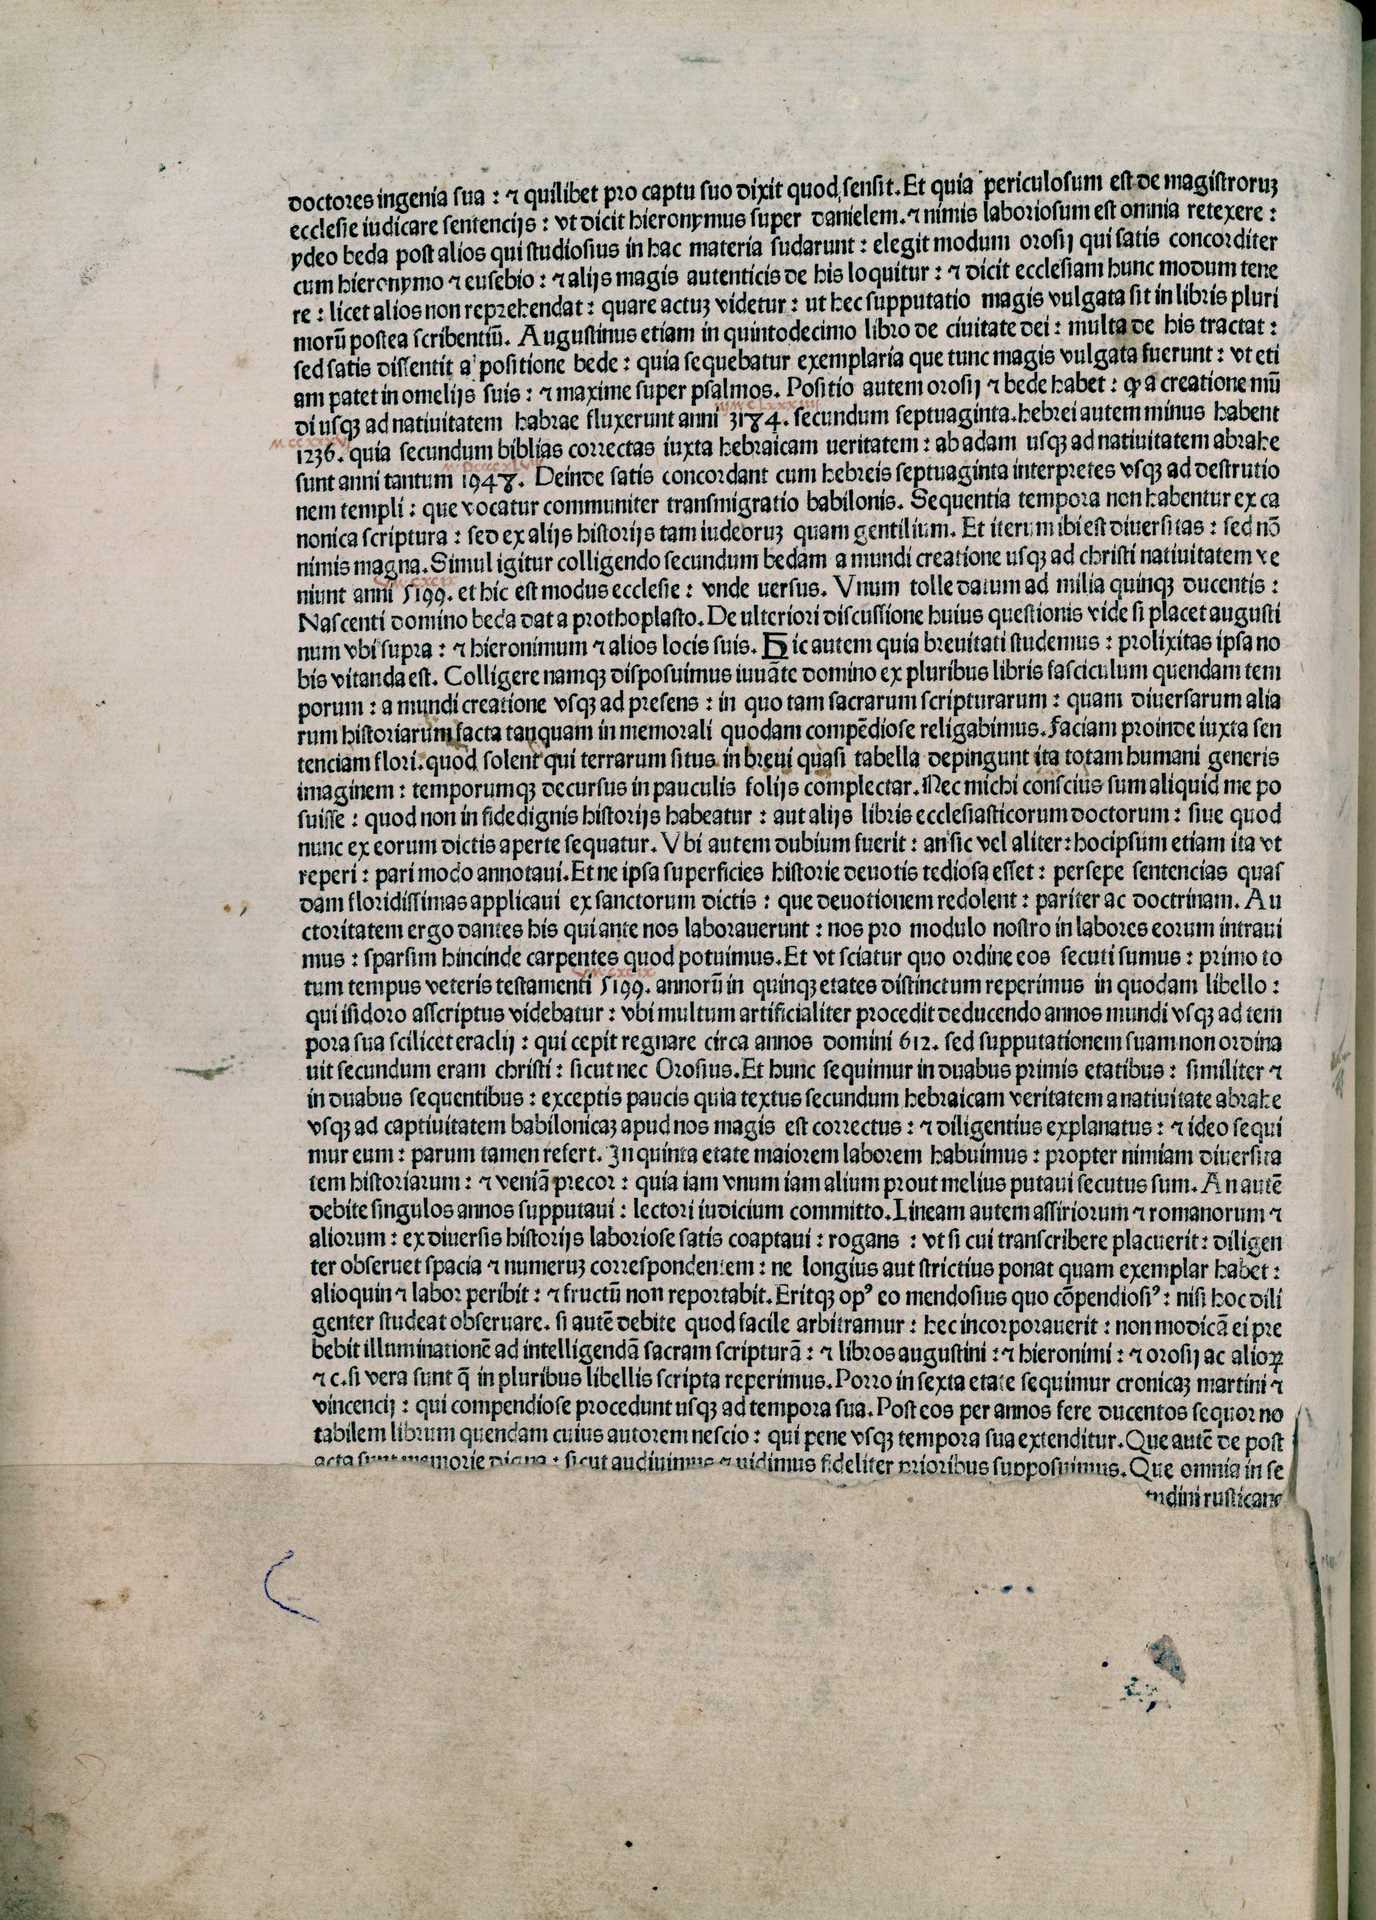 doctores ingenia sua : ⁊ quilibet pro captu suo dixit quod sensit. Et quia periculosum est de magistroruꝫ
ecclesie iudicare sentencijs : vt dicit hieronymus super danielem. ⁊ nimis laboriosum est omnia retexere :
ydeo beda post alios qui studiosius in hac materia sudarunt : elegit modum orosij qui satis concorditer
cum hieronymo ⁊ eusebio : ⁊ alijs magis autenticis de his loquitur : ⁊ dicit ecclesiam hunc modum tene
re : licet alios non reprehendat : quare actuꝫ videtur : ut hec supputatio magis vulgata sit in libris pluri
morū postea scribentiū. Augustinus etiam in quintodecimo libro de ciuitate dei : multa de his tractat :
sed satis dissentit a positione bede : quia sequebatur exemplaria que tunc magis vulgata fuerunt : vt eti
am patet in omelijs suis : ⁊ maxime super psalmos. Positio autem orosij ⁊ bede habet : ꝙ a creatione mū
di usqꝫ ad natiuitatem habrae fluxerunt anni 3184. secundum septuaginta. hebrei autem minus habent
1236. quia secundum biblias correctas iuxta hebraicam ueritatem : ab adam usqꝫ ad natiuitatem abrahe
sunt anni tantum 1948. Deinde satis concordant cum hebreis septuaginta interpretes vsqꝫ ad destrutio
nem templi : que vocatur communiter transmigratio babilonis. Sequentia tempora non habentur ex ca
nonica scriptura : sed ex alijs historijs tam iudeoruꝫ quam gentilium. Et iterum ibi est diuersitas : sed nō
nimis magna. Simul igitur colligendo secundum bedam a mundi creatione usqꝫ ad christi natiuitatem ve
niunt anni 5199. et hic est modus ecclesie : vnde uersus. Vnum tolle datum ad milia quinqꝫ ducentis :
Nascenti domino beda dat a prothoplasto. De ulteriori discussione huius questionis vide si placet augusti
num vbi supra : ⁊ hieronimum ⁊ alios locis suis. Hic autem quia breuitati studemus : prolixitas ipsa no
bis vitanda est. Colligere namqꝫ disposuimus iuuāte domino ex pluribus libris fasciculum quendam tem
porum : a mundi creatione vsqꝫ ad presens : in quo tam sacrarum scripturarum : quam diuersarum alia
rum historiarum facta tanquam in memorali quodam compēdiose religabimus. Faciam proinde iuxta sen
tenciam flori. quod solent qui terrarum situs in breui quasi tabella depingunt ita totam humani generis
imaginem : temporumqꝫ decursus in pauculis folijs complectar. Nec michi conscius sum aliquid me po
suisse : quod non in fidedignis historijs habeatur : aut alijs libris ecclesiasticorum doctorum : siue quod
nunc ex eorum dictis aperte sequatur. Vbi autem dubium fuerit : an sic vel aliter : hocipsum etiam ita vt
reperi : pari modo annotaui. Et ne ipsa superficies historie deuotis tediosa esset : persepe sentencias quas
dam floridissimas applicaui ex sanctorum dictis : que deuotionem redolent : pariter ac doctrinam. Au
ctoritatem ergo dantes his qui ante nos laborauerunt : nos pro modulo nostro in labores eorum intraui
mus : sparsim hincinde carpentes quod potuimus. Et vt sciatur quo ordine eos secuti sumus : primo to
tum tempus veteris testamenti 5199. annorū in quinqꝫ etates distinctum reperimus in quodam libello :
qui isidoro asscriptus videbatur : vbi multum artificialiter procedit deducendo annos mundi vsqꝫ ad tem
pora sua scilicet eraclij : qui cepit regnare circa annos domini 612. sed supputationem suam non ordina
uit secundum eram christi : sicut nec Orosius. Et hunc sequimur in duabus primis etatibus : similiter ⁊
in duabus sequentibus : exceptis paucis quia textus secundum hebraicam veritatem a natiuitate abrahe
vsqꝫ ad captiuitatem babilonicaꝫ apud nos magis est correctus : ⁊ diligentius explanatus : ⁊ ideo sequi
mur eum : parum tamen refert. In quinta etate maiorem laborem habuimus : propter nimiam diuersita
tem historiarum : ⁊ veniā precor : quia iam vnum iam alium prout melius putaui secutus sum. An autē
debite singulos annos supputaui : lectori iudicium committo. Lineam autem assiriorum ⁊ romanorum ⁊
aliorum : ex diuersis historijs laboriose satis coaptaui : rogans : vt si cui transcribere placuerit : diligen
ter obseruet spacia ⁊ numeruꝫ correspondentem : ne longius aut strictius ponat quam exemplar habet :
alioquin ⁊ labor peribit : ⁊ fructū non reportabit. Eritqꝫ opꝰ eo mendosius quo cōpendiosiꝰ : nisi hoc dili
genter studeat obseruare. si autē debite quod facile arbitramur : hec incorporauerit : non modicā ei pre
bebit illuminationē ad intelligendā sacram scripturā : ⁊ libros augustini : ⁊ hieronimi : ⁊ orosij ac alioꝝ
⁊ c. si vera sunt q̄ in pluribus libellis scripta reperimus. Porro in sexta etate sequimur cronicaꝫ martini ⁊
vincencij : qui compendiose procedunt usqꝫ ad tempora sua. Post eos per annos fere ducentos sequor no
tabilem librum quendam cuius autorem nescio : qui pene vsqꝫ tempora sua extenditur. Que autē de post
acta sunt memorie digna : sicut audiuimus ⁊ uidimus fideliter prioribus supposuimus. Que omnia in se
tudini rusticane